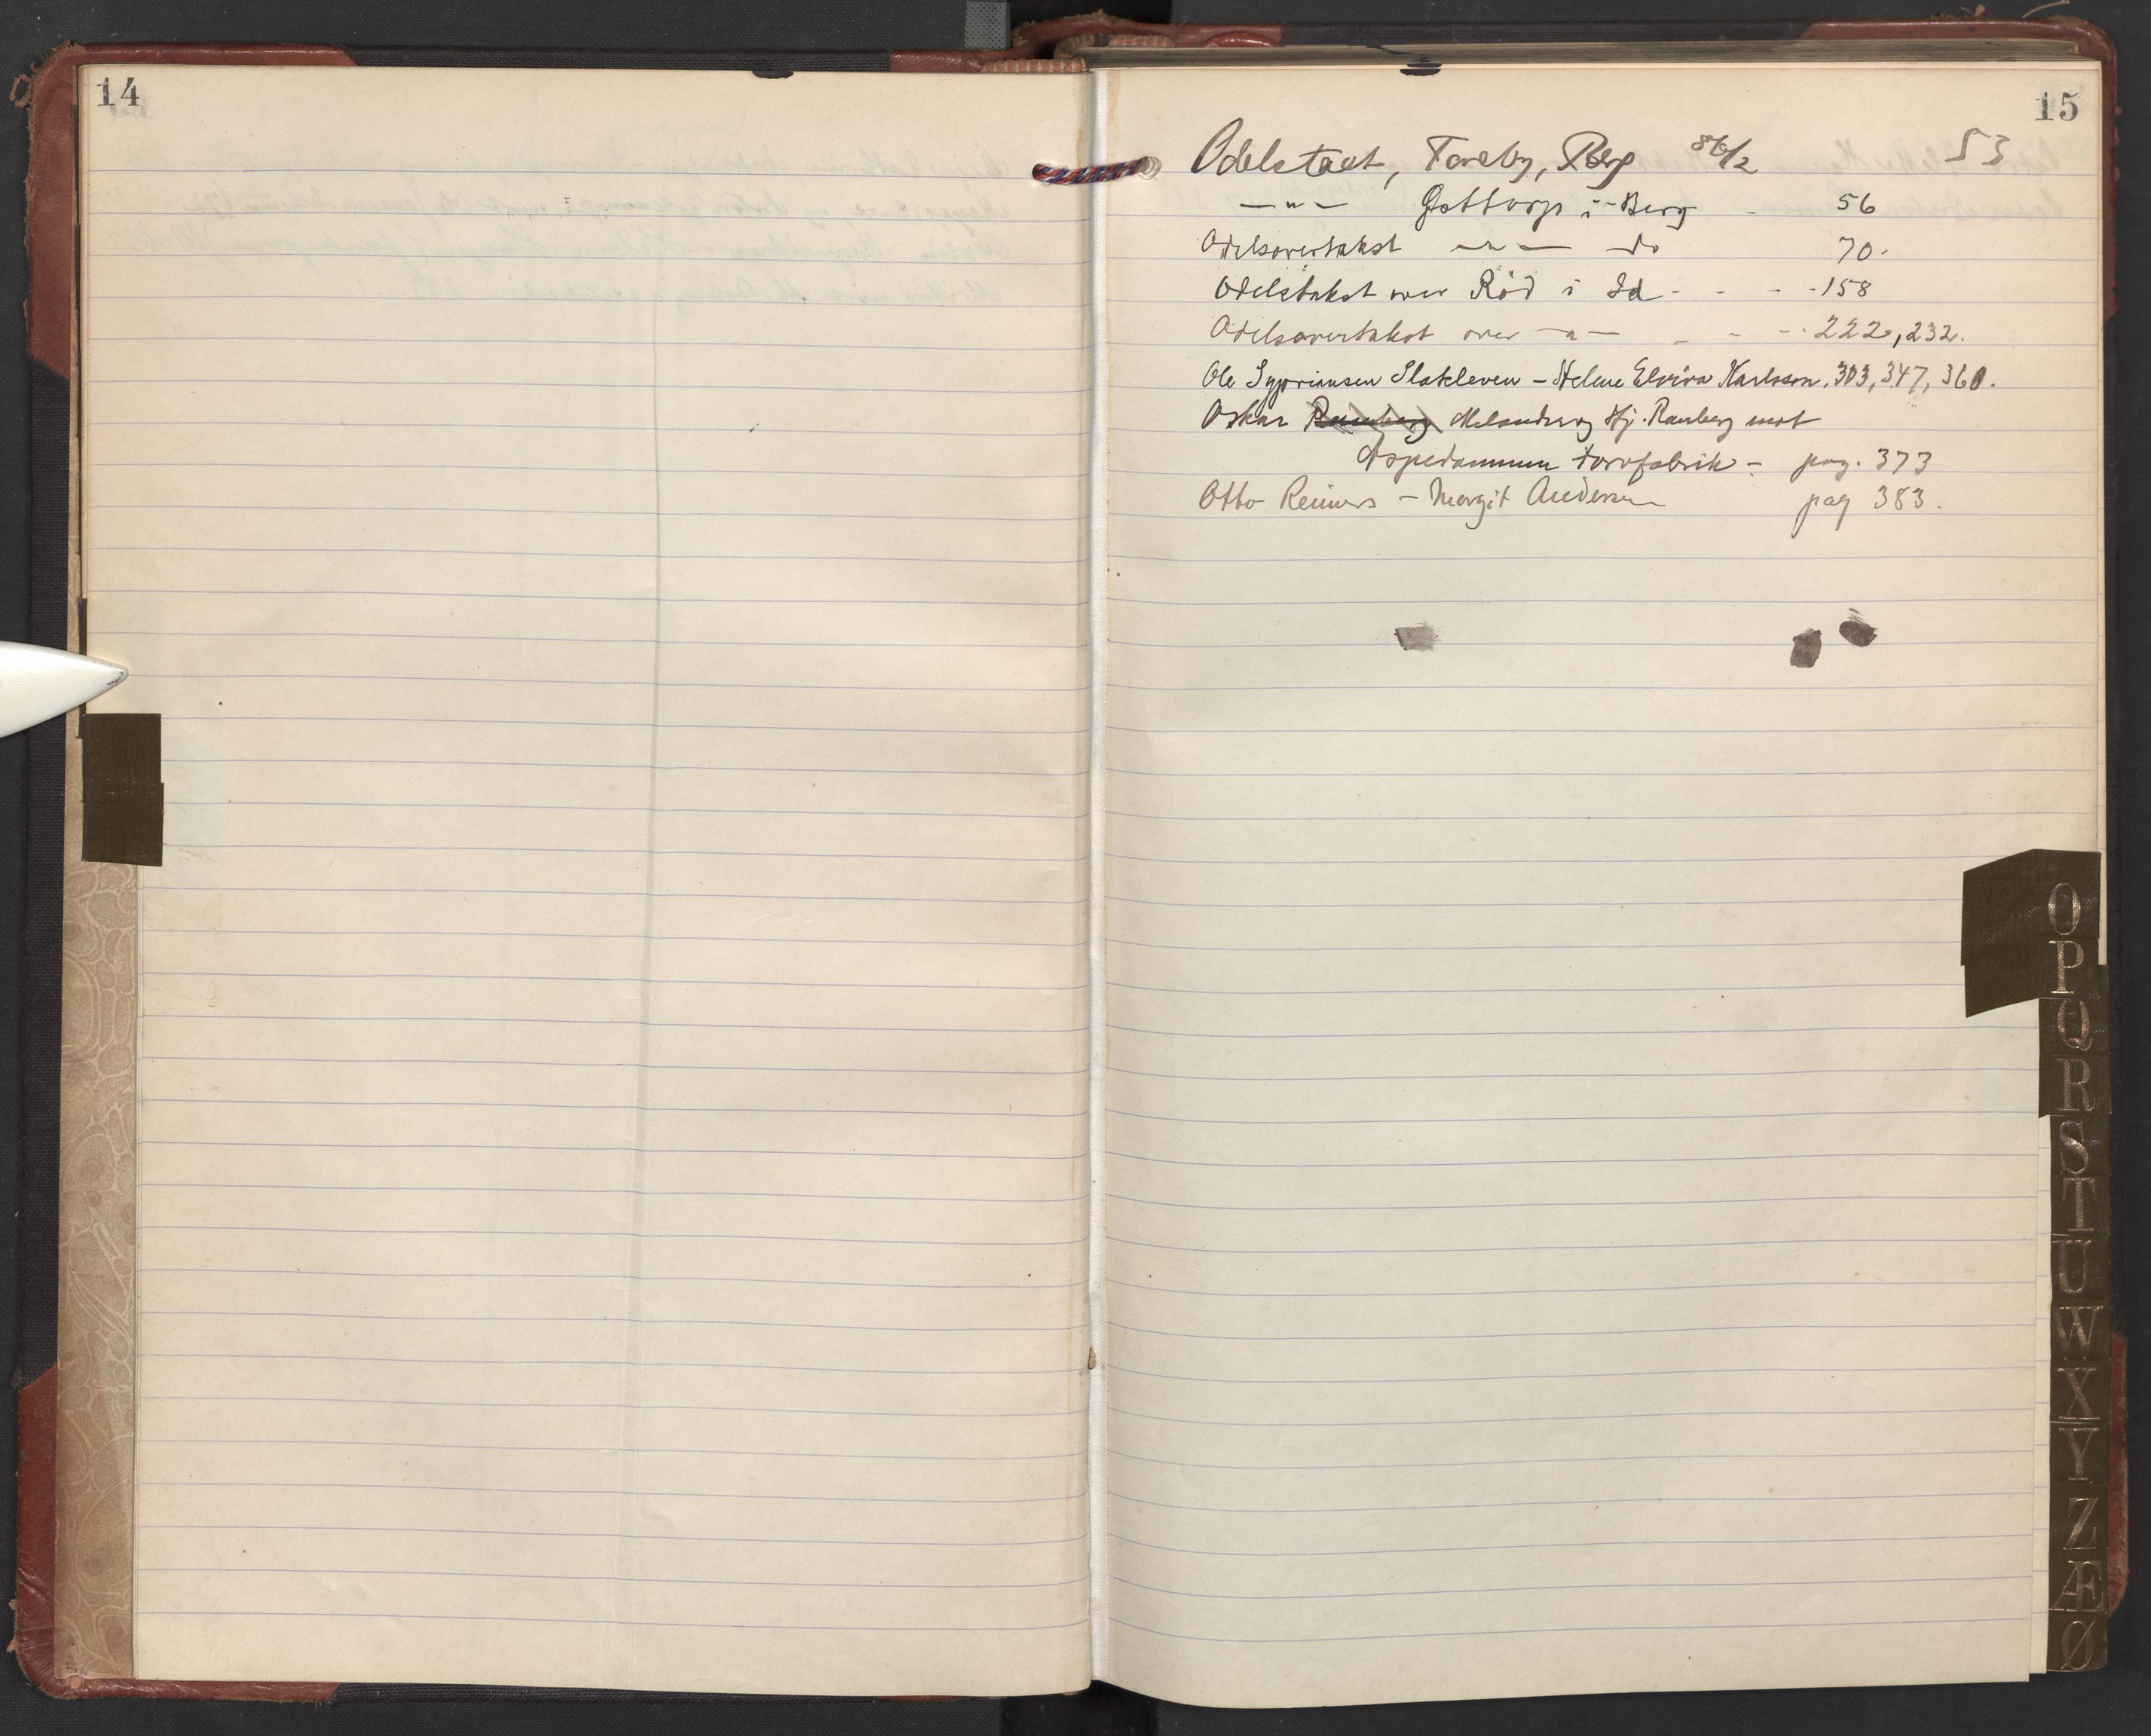 14
15
Odelstaxt, Toreby, Berg 86/2 53
—"— Gottorp i Berg - 56
Odelsovertakst —"— do 70.
Odelstakst over Röd i Id - - - - 158
Odelsovertakst over —"— - - - . 222, 232.
Ole Sypriansen Slakleven - Helene Elvira Karlsson. 303, 347, 360.
Oskar Ramberg Melandsrog Hj. Ramberg mot
Aspedammen torvfabrik - pag. 373
Otto Reimers - Margit Andersen pag 383.
O
P
Q
R
S
T
U
W
X
Y
Z
Æ
Ø